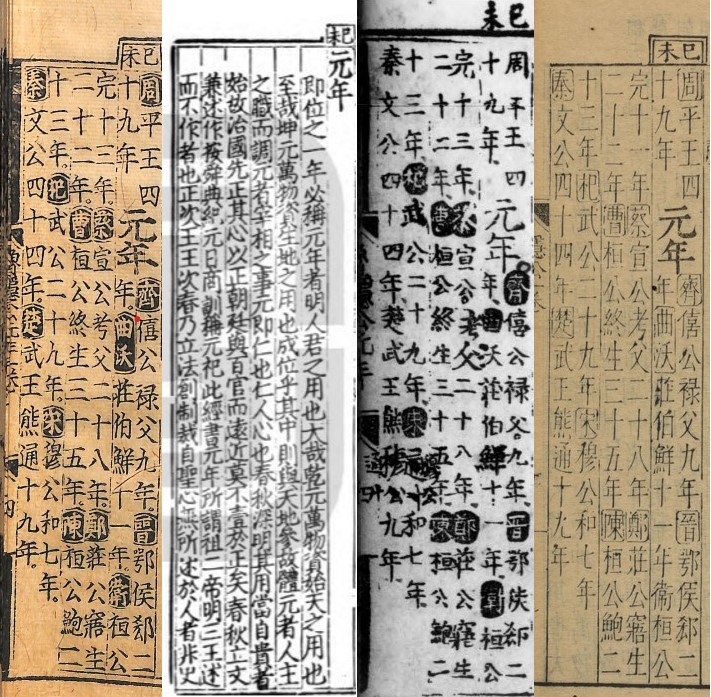 巳未
周平王四
十九年
元年
齊僖公禄父九年晉鄂侯郄二
年曲沃莊伯鮮十一年衛桓公
完十三年蔡宣公考父二十八年鄭莊公寤生
二十二年曹桓公終生三十五年陳桓公鮑二
十三年杞武公二十九年宋穆公和七年
秦文公四十四年楚武王熊通十九年
巳未
元年
即位之一年必稱元年者明人君之用也大哉乾元萬物資始天之用也
至哉坤元萬物資生地之用也成位乎其中則與天地參故體元者人主
之職而調元者宰相之事元即仁也仁人心也春秋深明其用當自貴者
始故治國先正其心以正朝廷與百官而遠近莫不壹於正矣春秋立文
兼述作按舜典紀元日商訓稱元祀此經書元年所謂祖二帝明三王述
而不作者也正次王王次春乃立法創制裁自聖心無所述於人者非史
巳未
周平王四
十九年
元年
齊僖公禄父九年晉鄂侯郄二
年曲沃莊伯鮮十一年衛桓公
完十三年蔡宣公考父二十八年鄭莊公寤生
二十二年曹桓公終生三十五年陳桓公鮑二
十三年杞武公二十九年宋和七年
秦文公四十四年楚武王熊九年
巳未
周平王四
十九年
元年
齊僖公禄父九年晉鄂侯郄二
年曲沃莊伯鮮十一年衛桓公
完十一年蔡宣公考父二十八年鄭莊公寤生
二十二年曹桓公終生三十五年陳桓公鮑二
十二年杞武公二十九年宋穆公和七年
秦文公四十四年楚武王熊通十九年